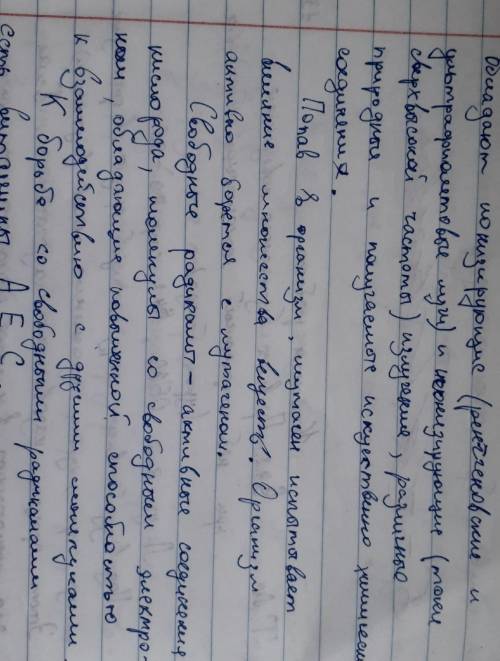 обладают ионизирующие (рентгеновские и
ультрафиолетовые лучи) и неионизирующие (токи
сверхвысокой частоты) излучения, различные
природные и получаемые искуственно химическ
соединения.
Попав в организм, мутаген испытывает
влияние множества веществ. Организм
активно борется с мутагеном.
Свободные радикалы - активные соединения
кислорода, молекулы со свободным электро-
ном, обладающие повышенной способностью
к взаимодействию с другими молекулами
К борьбе со свободными радикалами
есть витамины А Е С